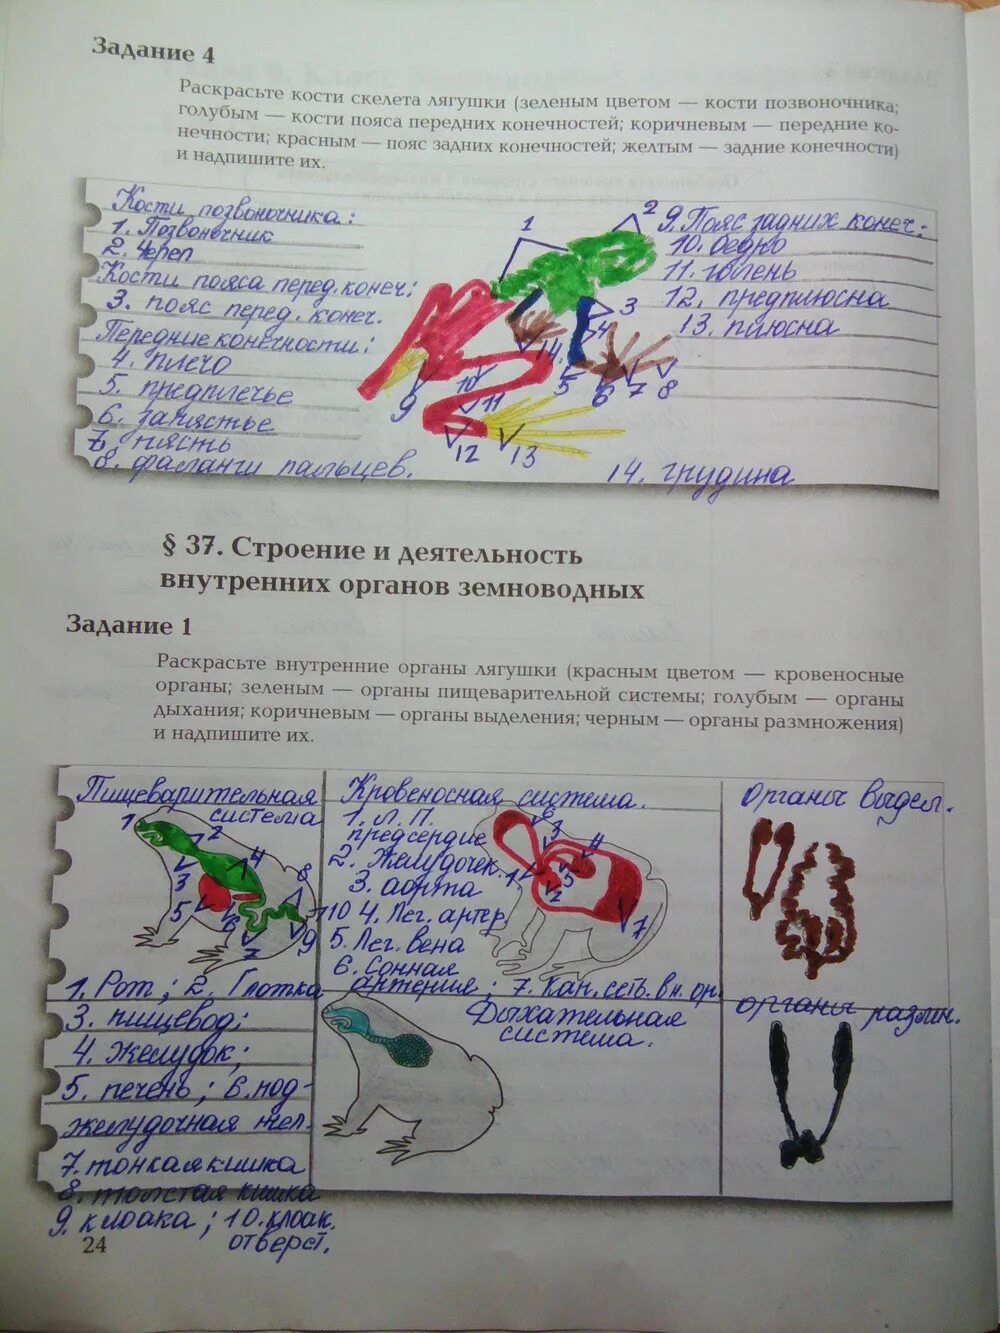 Задание 4
Раскрасьте кости скелета лягушки (зеленым цветом — кости позвоночника;
голубым — кости пояса передних конечностей; коричневым — передние ко-
нечности; красным — пояс задних конечностей; желтым — задние конечности)
и надпишите их.
Кости позвоночника:
1. Позвоночник
2. Череп
Кости пояса перед. конеч:
3. пояс перед. конеч.
Передние конечности:
4. плечо
5. предплечье
6. запястье
7. пясть
8. фаланги пальцев.
1
2
3
4
14.
5
6
7
8
9
10
11
12
13
9. Пояс задних конеч:
10. бедро
11. голень
12. предплюсна
13. плюсна
14. грудина
§ 37. Строение и деятельность
внутренних органов земноводных
Задание 1
Раскрасьте внутренние органы лягушки (красным цветом — кровеносные
органы; зеленым — органы пищеварительной системы; голубым — органы
дыхания; коричневым — органы выделения; черным — органы размножения)
и надпишите их.
Пищеварительная
система
1
2
3
4
5
6
7
8
9
10
1. Рот; 2. Глотка
3. пищевод;
4. Желудок;
5. печень; 6. под-
желудочная жел.
7. тонкая кишка
8. толстая кишка
9. клоака; 10. клоак.
отверст.
Кровеносная система.
1. Л. П.
предсердие
2. Желудочек
3. аорта
4. Лег. артер.
5. Лег. вена
6. Сонная
артерия; 7. Кап. сеть. вн. ор.
6
3
4
1
5
2
7
Дыхательная
система.
органы выдел.
органы размн.
24